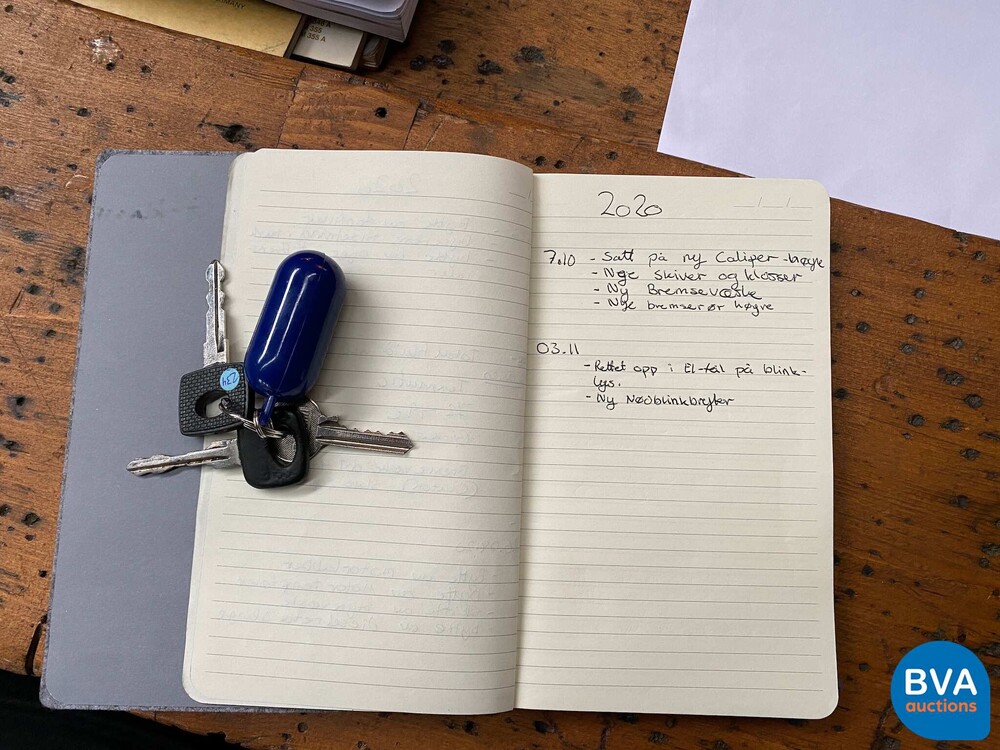 MANY
355 A
2020
7.10 - Satt på ny Caliper -høyre
- Nye skiver og klosser
- Ny Bremsevæske
- Nye bremserør høyre
03.11
- Rettet opp i El-feil på blink-
lys.
- Ny Nødblinkbryter
234
BVA
auctions